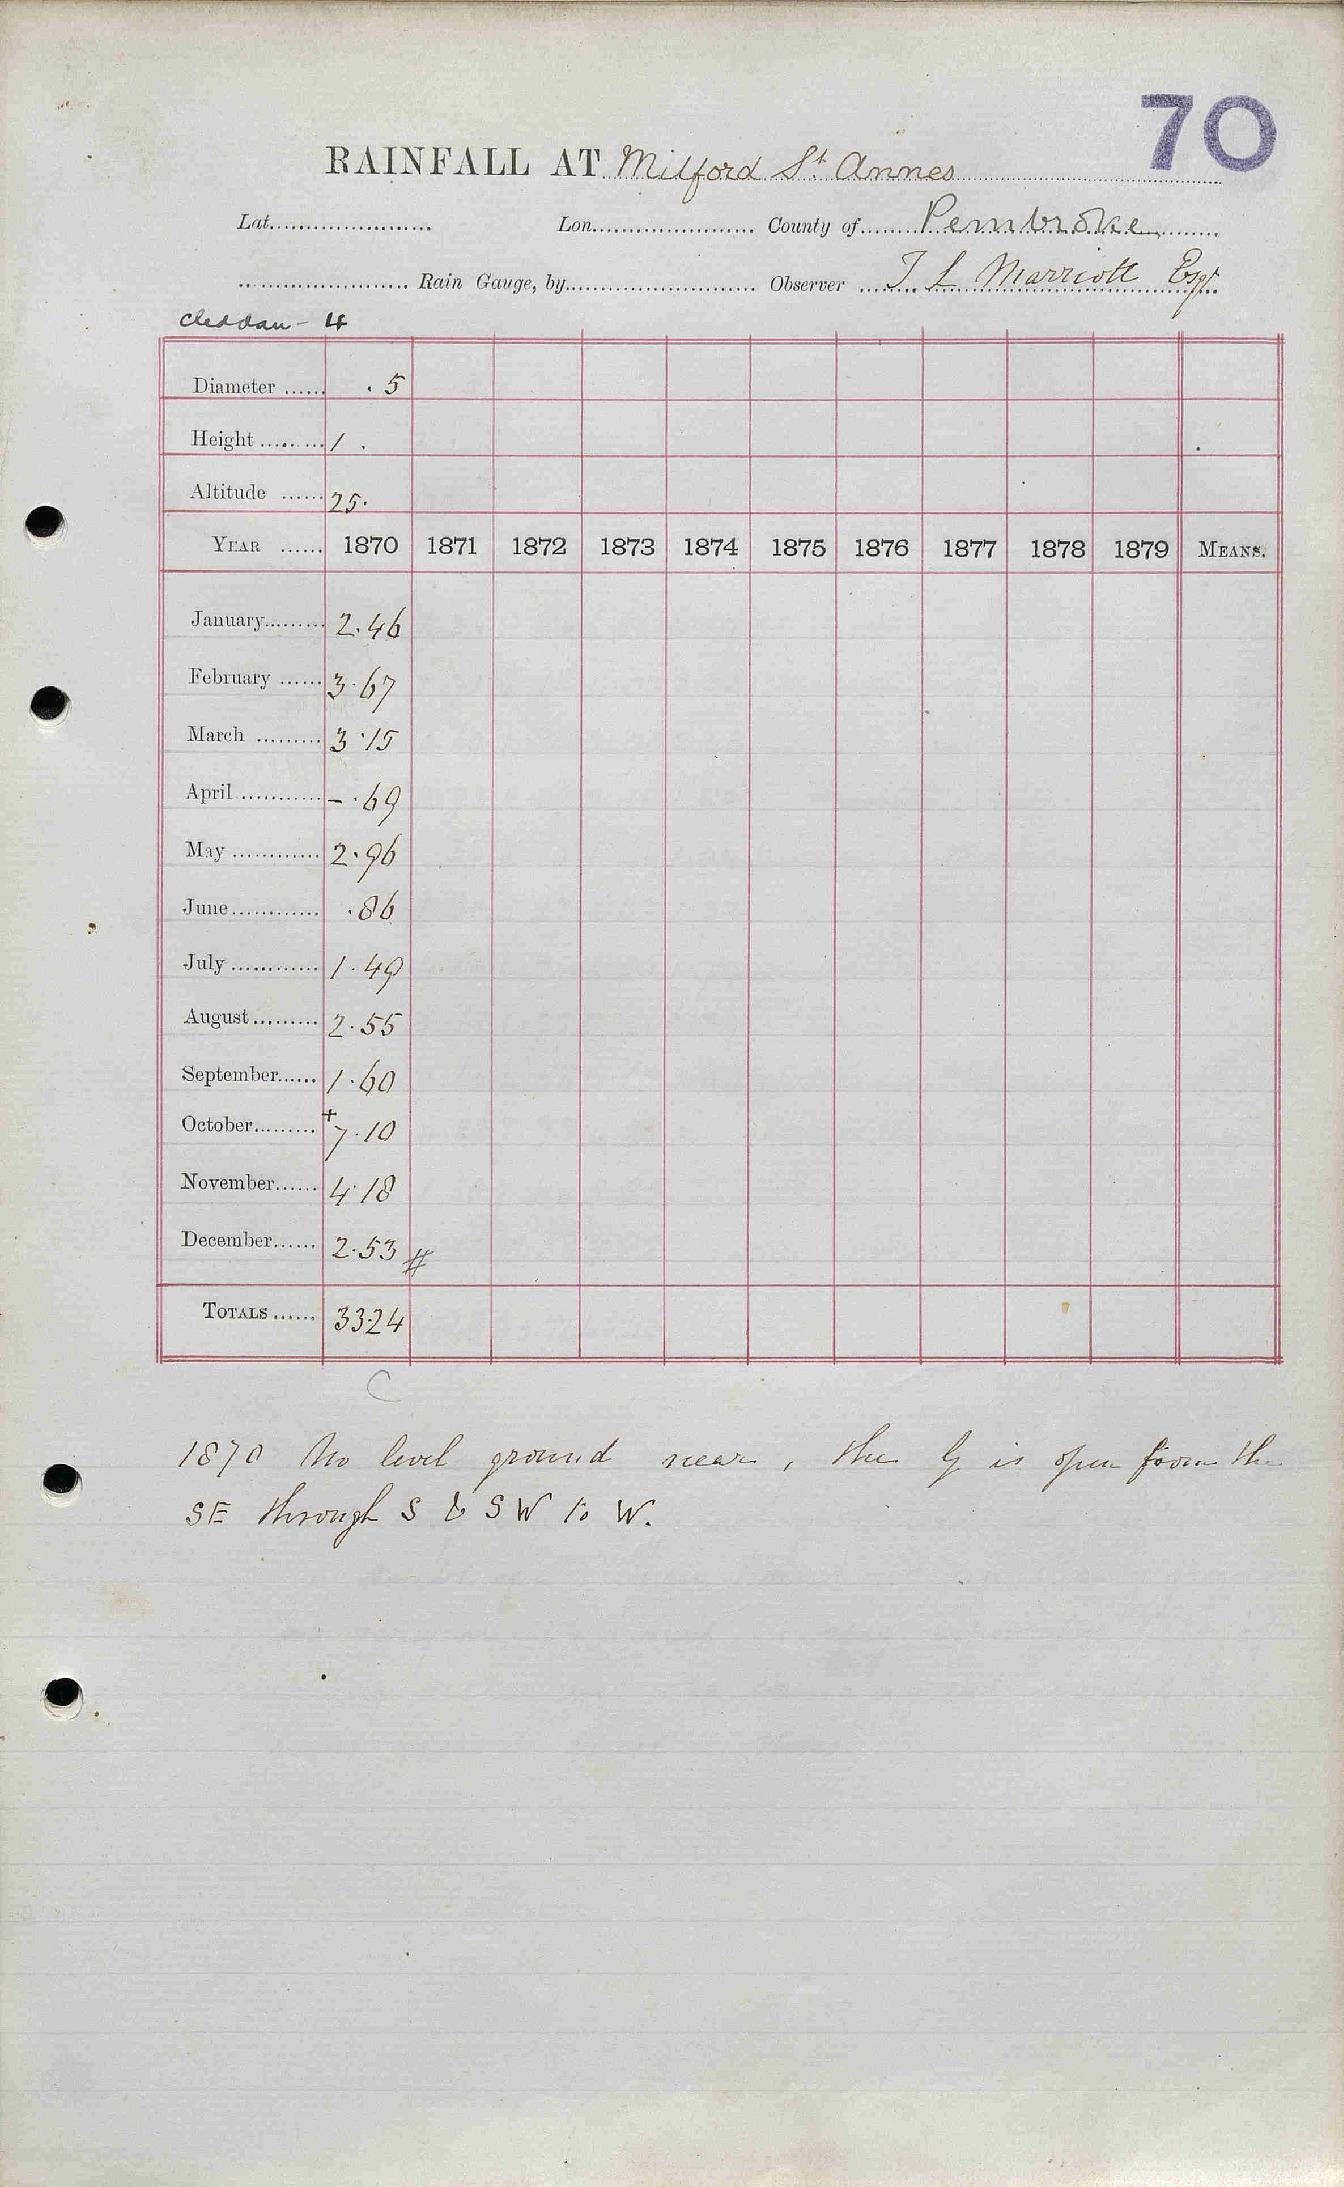 70
RAINFALL AT Milford St Annes
Lat...................... Lon...................... County of Pembroke
...................... Rain Gauge, by........................... Observer T L Marriott Esqr
Cleddau - 4
Diameter ...... .5
Height ......... 1 .
Altitude ...... 25.
YEAR ...... 1870 1871 1872 1873 1874 1875 1876 1877 1878 1879 MEANS.
January......... 2.46
February ...... 3.67
March ......... 3.15
April ............ - .69
May ............ 2.96
June............ .86
July ............ 1.49
August......... 2.55
September...... 1.60
October......... +7.10
November...... 4.18
December...... 2.53 #
TOTALS ...... 33.24
C
1870 No level ground near, the G is open from the
SE through S & SW to W.